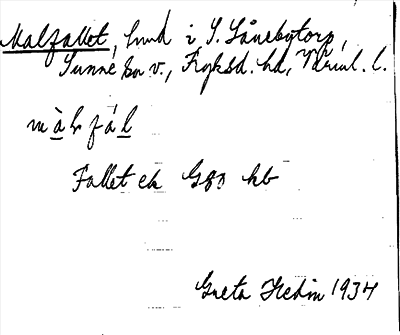 Malfallet, hmd i S. Lånebytorp,
Sunne sn v., Fryksd. hd, Värml. l.
m à l f á l
Fallet ek Gg0 kb
Greta Hedin 1934